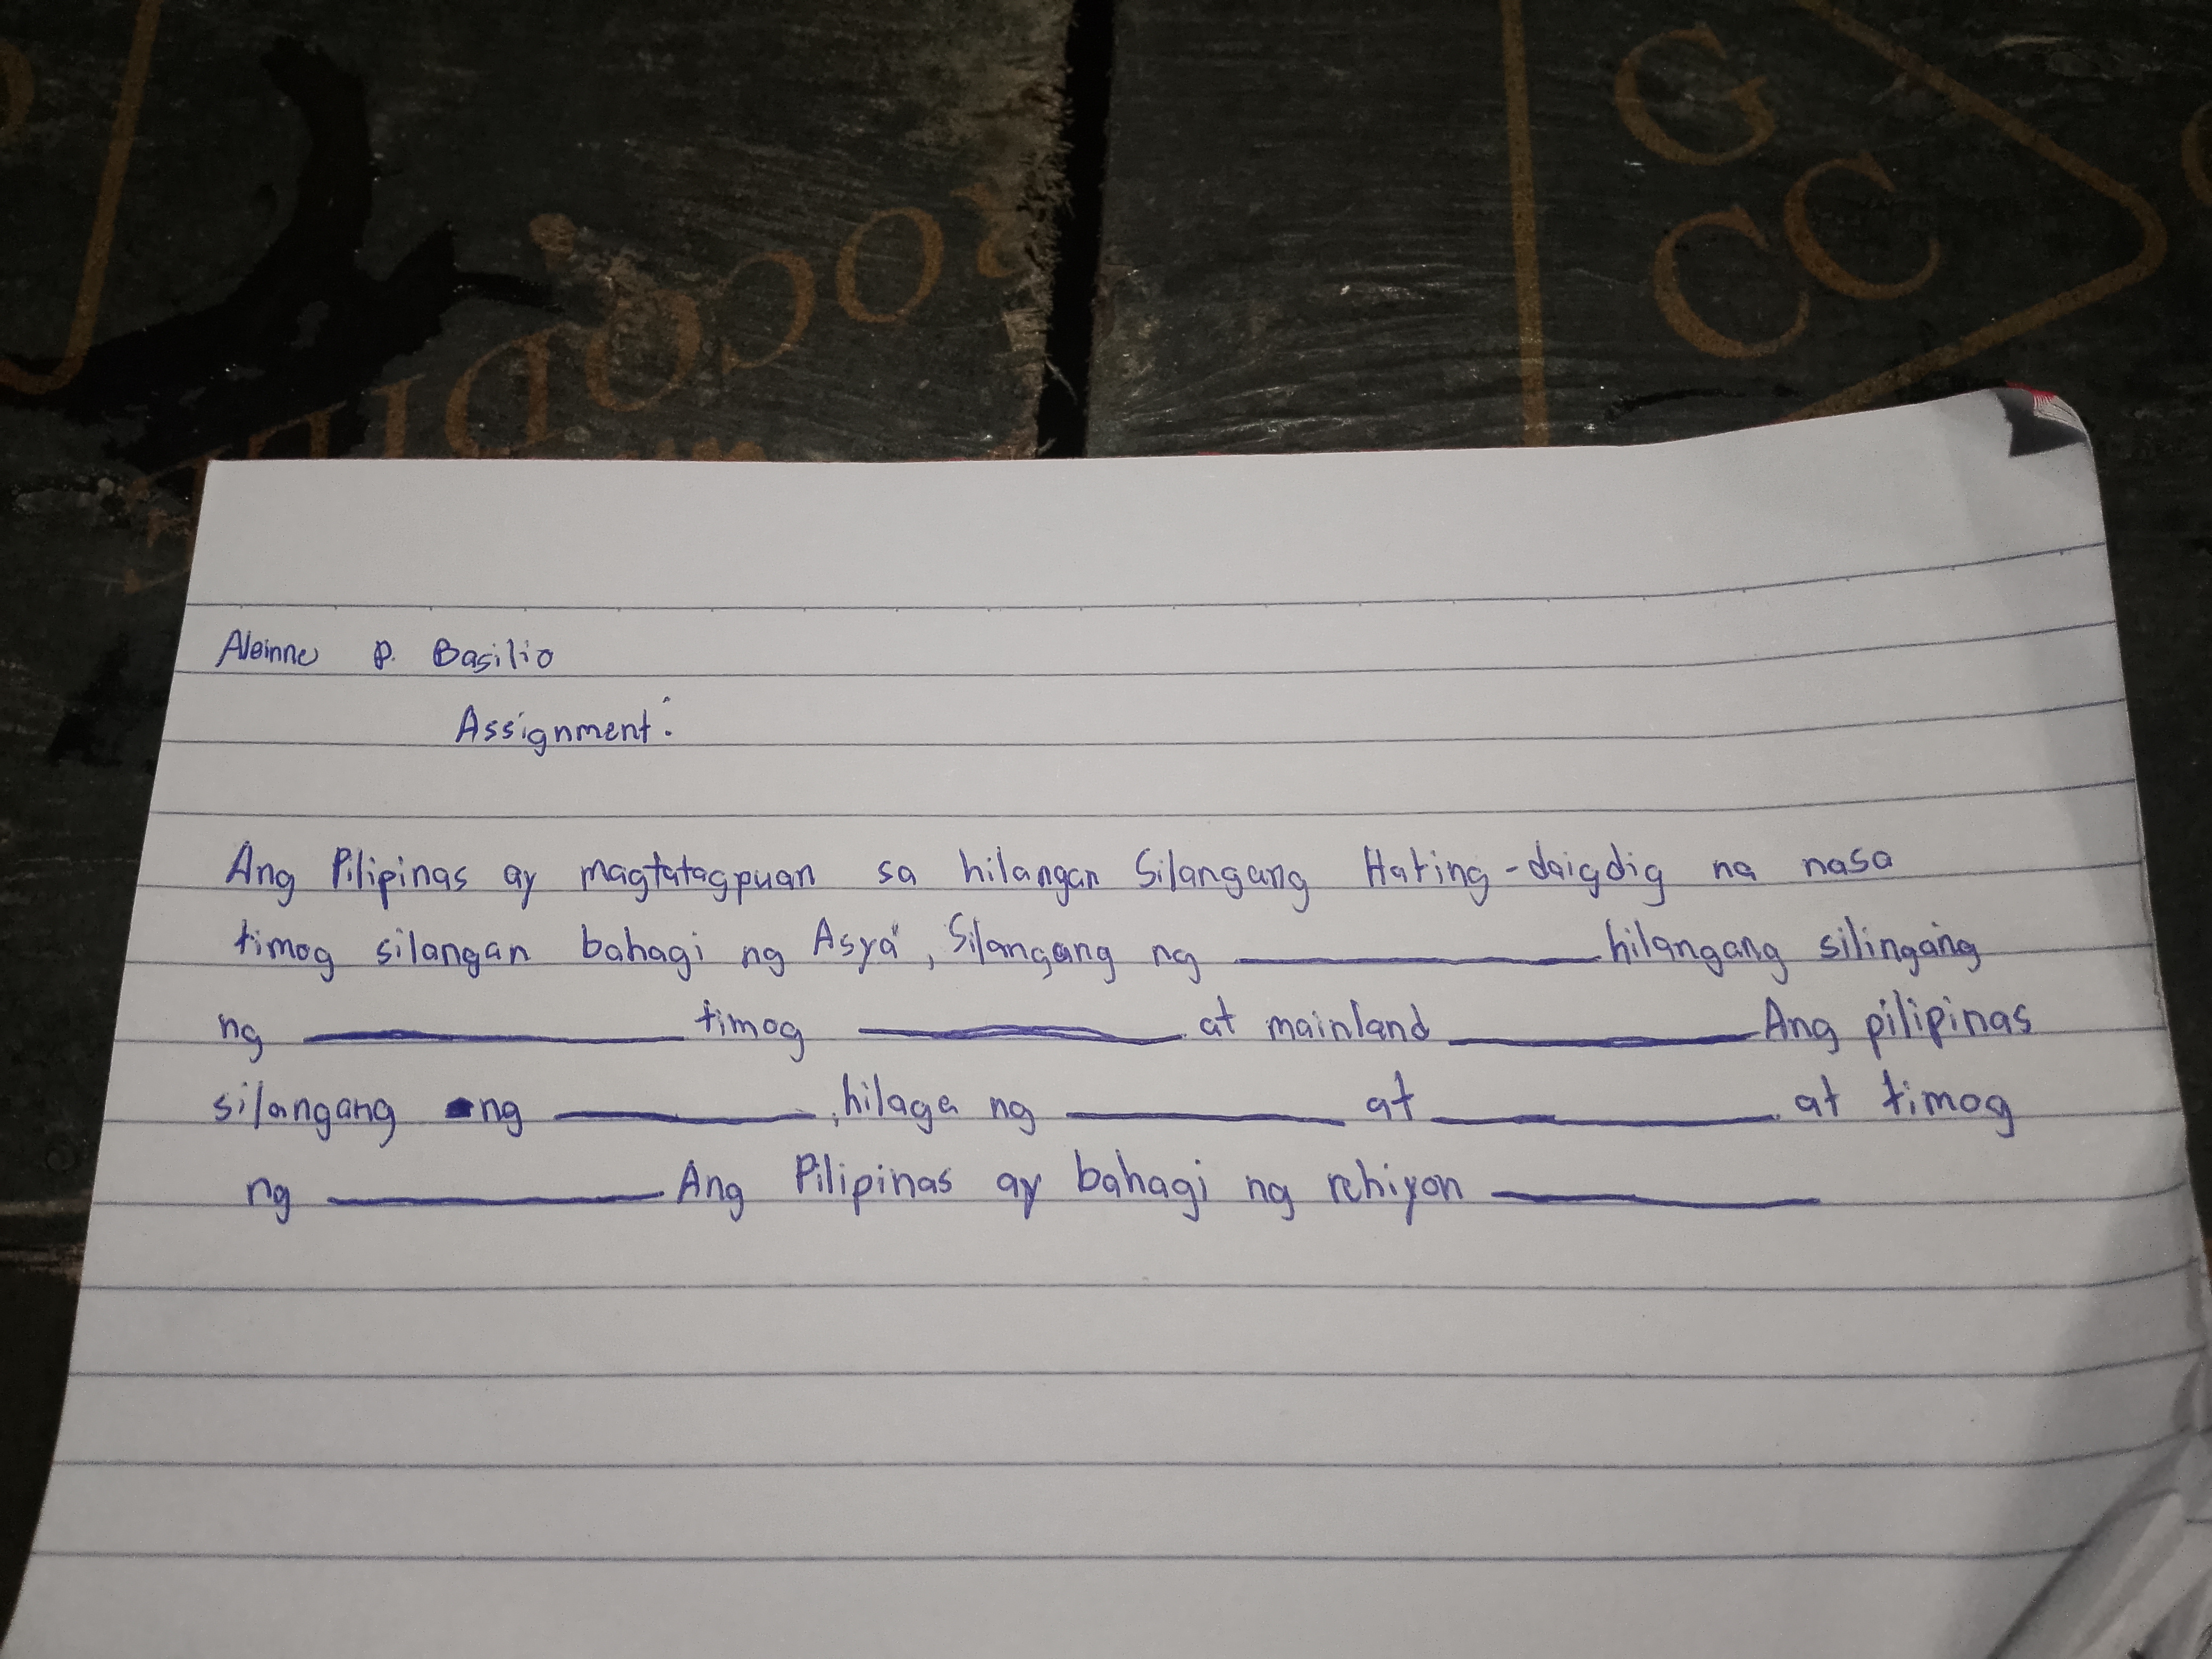 G
CC
Aleinne P. Basilio
Assignment:
Ang Pilipinas ay magtatagpuan sa hilangan Silangang Hating-daigdig na nasa
timog silangan bahagi ng Asya, Silangang ng ____________ hilangang silingang
ng ____________ timog ____________ at mainland ____________ Ang pilipinas
silangang ng ____________, hilaga ng ____________ at ____________ at timog
ng ____________ Ang Pilipinas ay bahagi ng rehiyon ____________